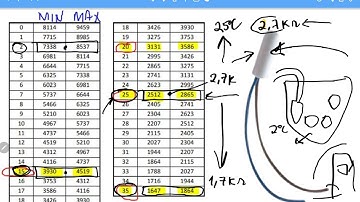 MIN MAX
0 8114 9459
1 7715 8985
2 7338 8537
3 6981 8114
4 6644 7715
5 6325 7338
6 6023 6981
7 5737 6644
8 5466 6325
9 5210 6023
10 4967 5737
11 4737 5466
12 4519 5210
13 4312 4967
14 4116 4737
15 3930 4519
16 3753 4312
17 3586 4116
18 3426 3930
18 3426 3930
19 3275 3753
20 3131 3586
21 2995 3426
22 2865 3275
23 2742 3131
24 2624 2995
25 2512 2865
26 2405 2741
27 2304 2624
28 2207 2512
29 2115 2405
30 2027 2304
31 1944 2207
32 1864 2115
33 1788 2027
34 1716 1944
35 1647 1864
25°C
2,7K
1,7KΩ
2,7KΩ
2°C